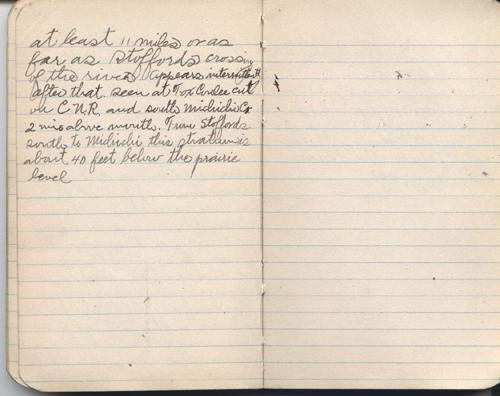 at least 11 miles or as
far as Stoffords crossing
of the river appears intermittent
after that. seen at Fox Coulee cut
on C N R. and south Michichi Cr
2 mis above mouth. From Stoffords
south to Michichi this stratum is
about 40 feet below the prairie
level